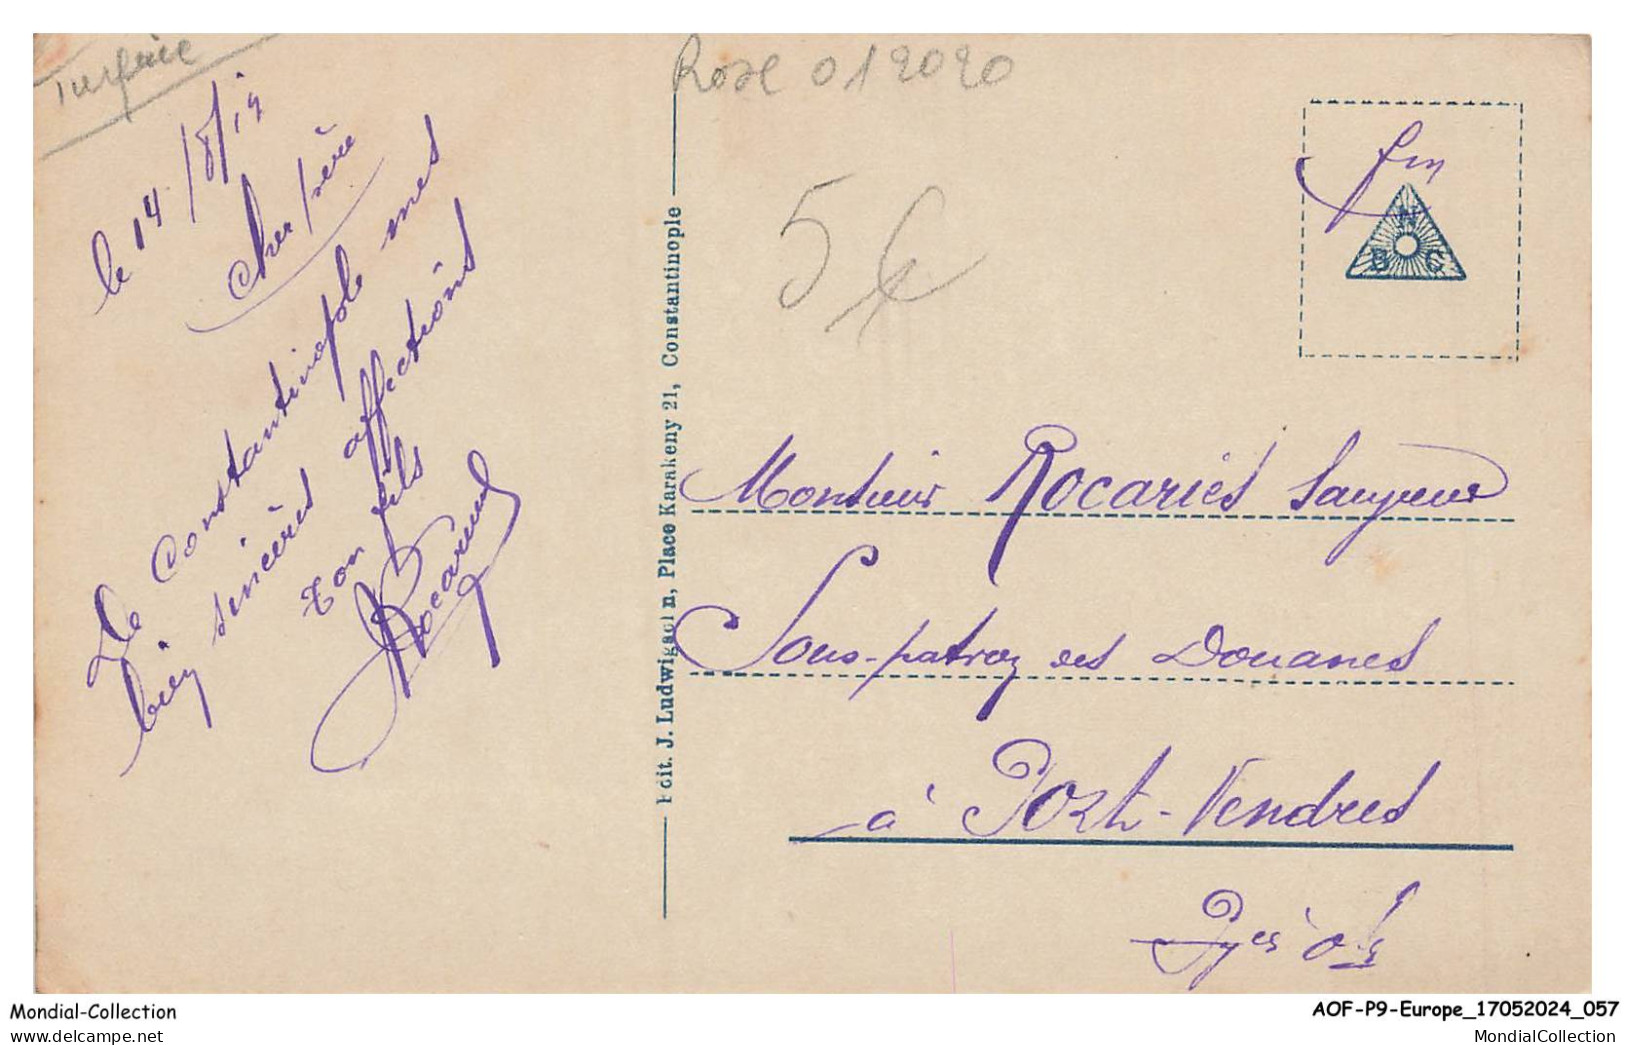 Turquie
Rose 012020
le 14/8/19
Cher père
De Constantinople mes
bien sincères affections
Ton fils
Rocaries
5€
Edit. J. Ludwigsohn, Place Karakeny 21, Constantinople
fm
N
B C
Monsieur Rocariés Sauveur
Sous-patron des Douanes
à Port-Vendres
Pyes Ols
Mondial-Collection
mondial-collection@live.fr
AOF-P9-Europe_17052024_057
MondialCollection